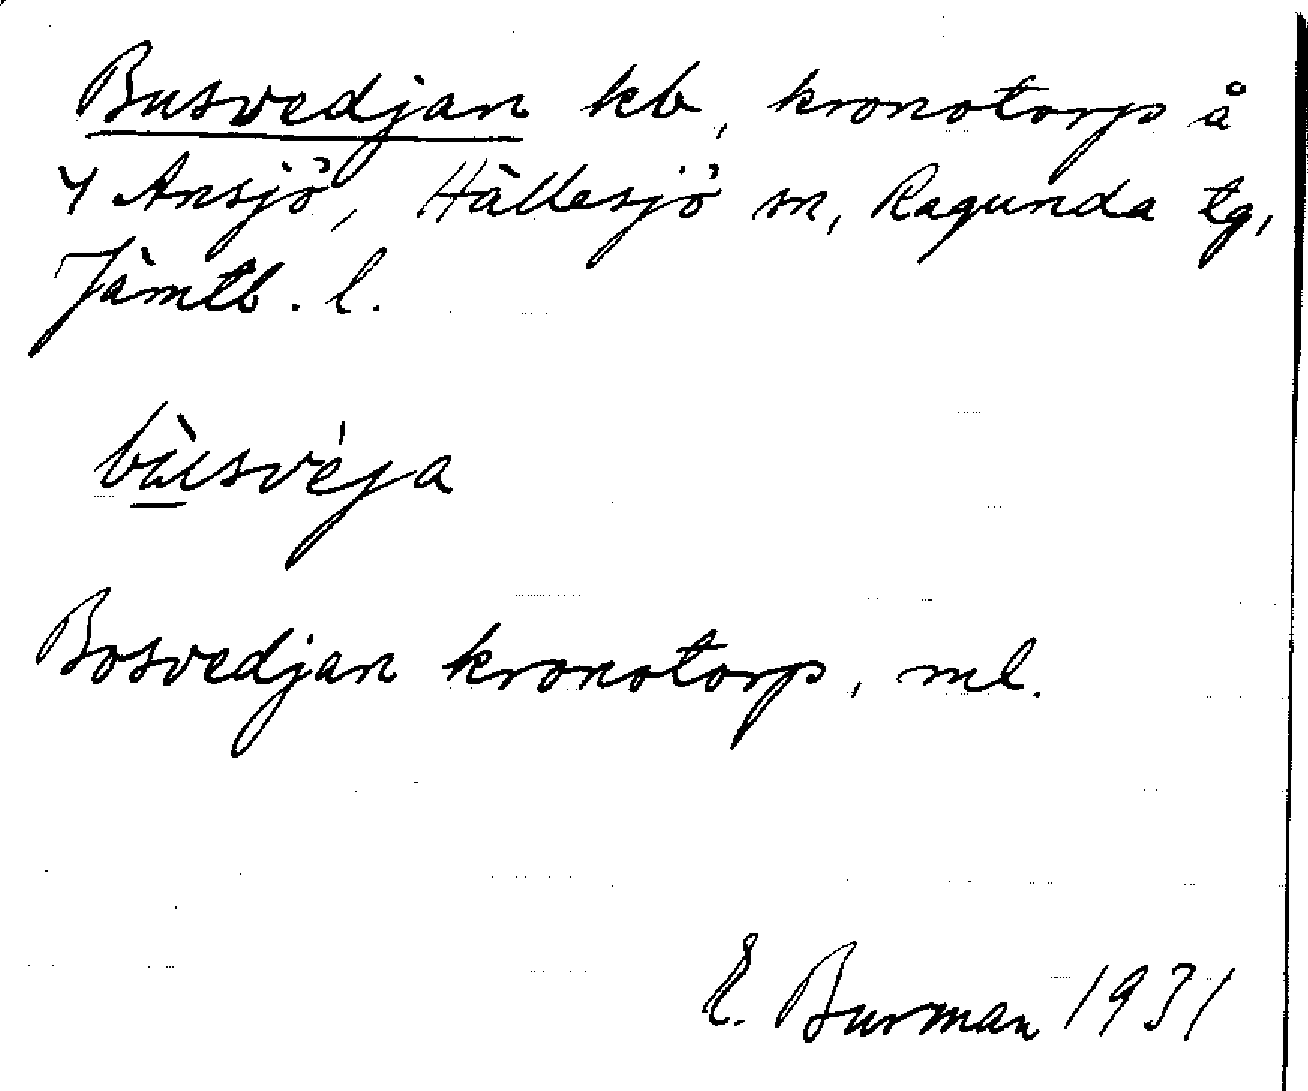 Busvedjan kb, kronotorp å
4 Ansjö, Hällesjö sn, Ragunda tg,
Jämtl. l.
bùsvéja
Bosvedjan kronotorp, ml.
E. Burman 1931